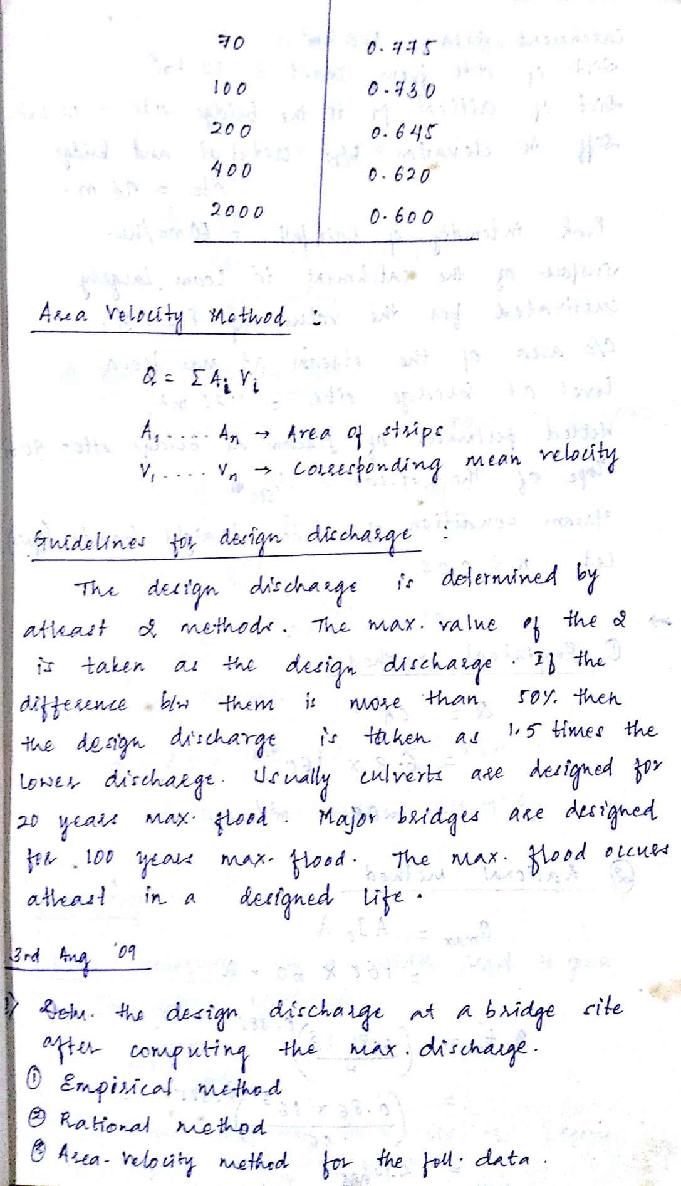 70 0.775
100 0.730
200 0.645
400 0.620
2000 0.600
Area Velocity Method :
Q = Σ Ai Vi
A1 .... An → Area of strips
V1 .... Vn → Corresponding mean velocity
Guidelines for design discharge :
The design discharge is determined by
atleast 2 methods. The max. value of the 2
is taken as the design discharge. If the
difference b/w them is more than 50% then
the design discharge is taken as 1.5 times the
lower discharge. Usually culverts are designed for
20 years max. flood. Major bridges are designed
for 100 years max. flood. The max. flood occurs
atleast in a designed life.
3rd Aug '09
1) Detn. the design discharge at a bridge site
after computing the max. discharge.
① Empirical method
② Rational method
③ Area-Velocity method for the foll. data.